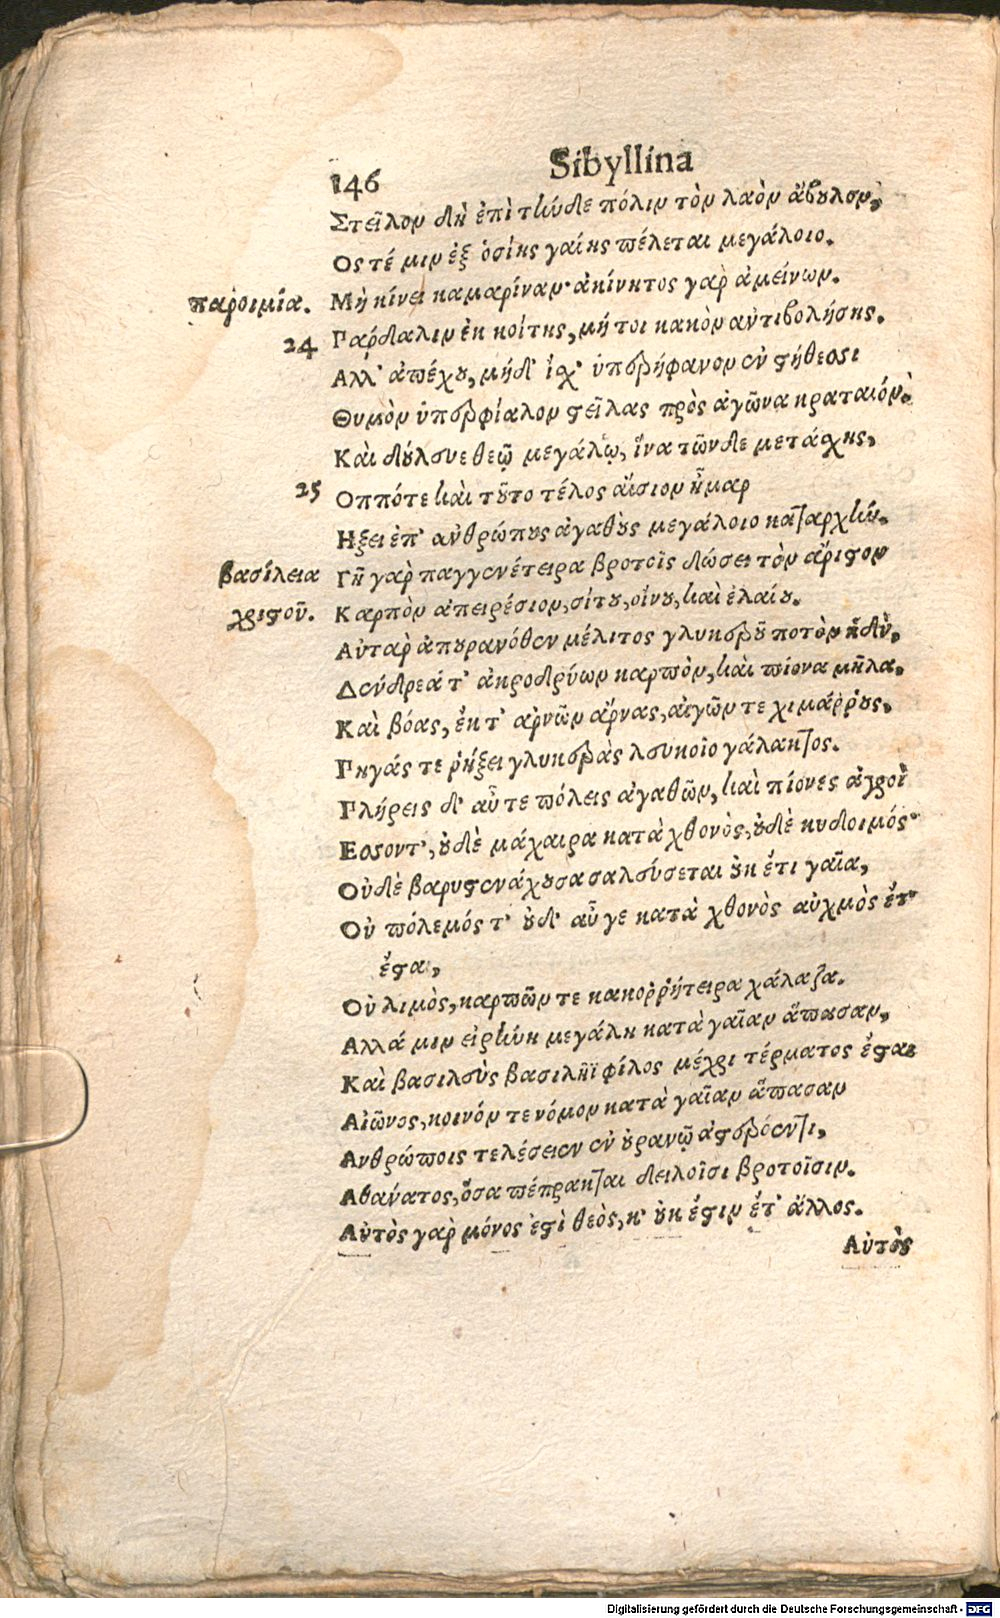 146 Sibyllina
Στεῖλον δὴ ἐπὶ τήνδε πόλιν τὸν λαὸν ἄβουλον,
Ος τέ μιν ἐξ ὁσίης γαίης πέλεται μεγάλοιο.
παροιμία. Μὴ κίνει καμαρίναν· ἀκίνητος γὰρ ἀμείνων.
24 Παρδαλιν ἐκ κοίτης, μή τοι κακὸν αντιβολήσῃς.
Αλλ' ἀπέχου, μήδ' ἴχ' ὑπερήφανον ἐν στήθεσσι
Θυμὸν ὑπερφίαλον στεῖλας πρὸς ἀγῶνα κραταιόν.
Καὶ δούλευε θεῷ μεγάλῳ, ἵνα τῶνδε μετάσχῃς.
25 Οππότε καὶ τοῦτο τέλος αἴσιον ἦμαρ
Ηξει ἐπ' ανθρώπους ἀγαθοὺς μεγάλοιο κατ' αρχὴν.
βασίλεια Γῆ γὰρ παγγενέτειρα βροτοῖς δώσει τὸν ἄριστον
χριστοῦ. Καρπὸν ἀπειρέσιον, σίτου, οἴνου, καὶ ἐλαίου.
Αὐτὰρ ἀπ' ουρανόθεν μέλιτος γλυκεροῦ ποτὸν ἡδὺ,
Δένδρεά τ' ἀκροδρύων καρπὸν, καὶ πίονα μῆλα,
Καὶ βόας, ἔκ τ' αρνῶν ἄρνας, αἰγῶν τε χιμάῤῥους,
Πηγάς τε ῥήξει γλυκερὰς λευκοῖο γάλακτος.
Πλήρεις δ' αὖτε πόλεις ἀγαθῶν, καὶ πίονες ἀγροὶ
Εσσοντ', οὐδὲ μάχαιρα κατὰ χθονὸς, οὐδὲ κυδοιμός·
Οὐδὲ βαρυστενάχουσα σαλεύσεται οὐκ ἔτι γαῖα,
Οὐ πόλεμός τ' οὐδ' αὖ γε κατὰ χθονὸς αὐχμὸς ἔτ'
ἔσται,
Οὐ λιμὸς, καρπῶν τε κακοῤῥήτειρα χάλαζα.
Αλλά μιν εἰρήνη μεγάλη κατὰ γαῖαν ἅπασαν,
Καὶ βασιλεὺς βασιλῆϊ φίλος μέχρι τέρματος ἔσται
Αἰῶνος, κοινόν τε νόμον κατὰ γαῖαν ἅπασαν
Ανθρώποις τελέσειεν ἐν οὐρανῷ ἀστερόεντι,
Αθανατος, ὅσα πέπρακται δειλοῖσι βροτοῖσιν.
Αὐτὸς γὰρ μόνος ἐστὶ θεὸς, κ' οὐκ ἔστιν ἔτ' ἄλλος.
Αὐτὸς
Digitalisierung gefördert durch die Deutsche Forschungsgemeinschaft - DFG